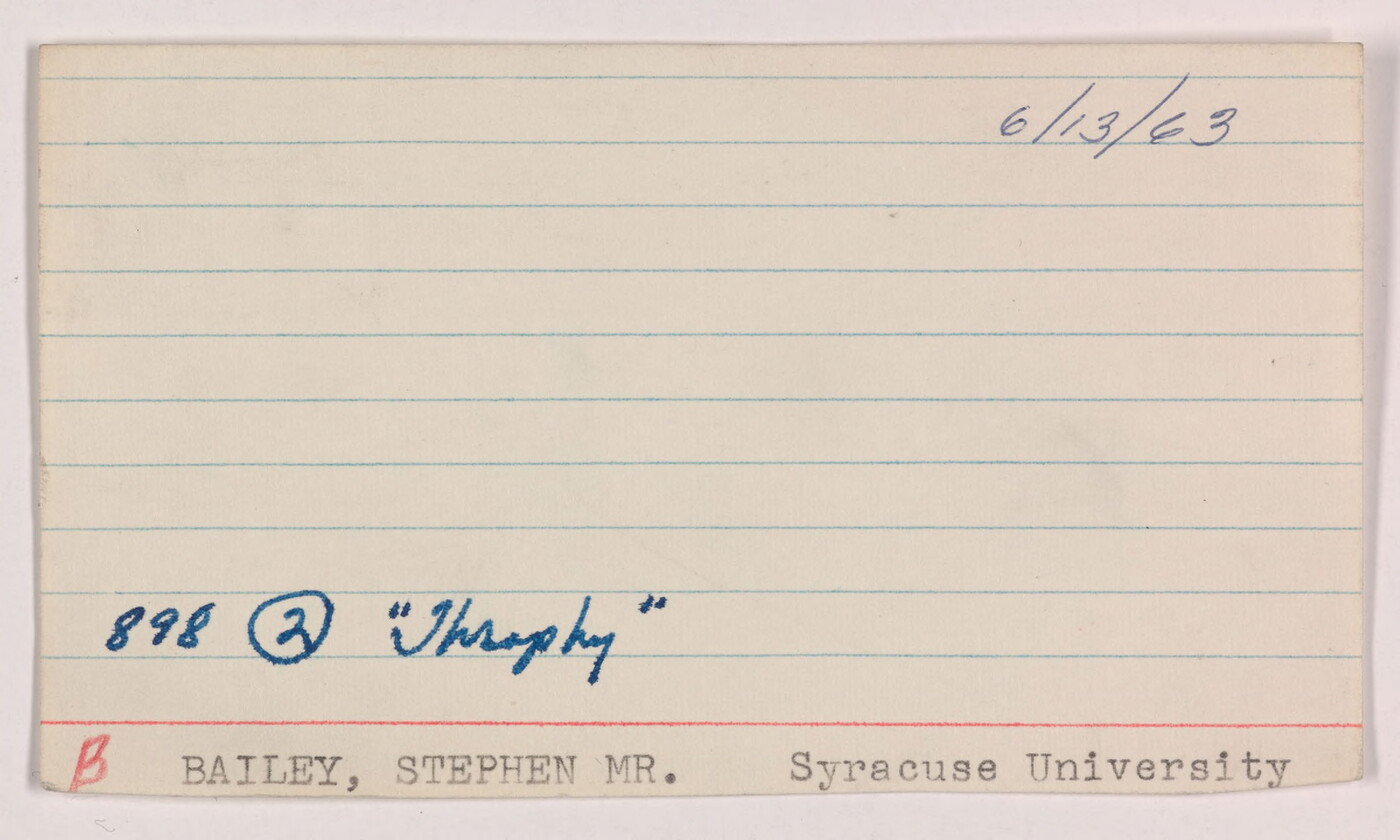 6/13/63
898 ② "Throphy"
B BAILEY, STEPHEN MR. Syracuse University